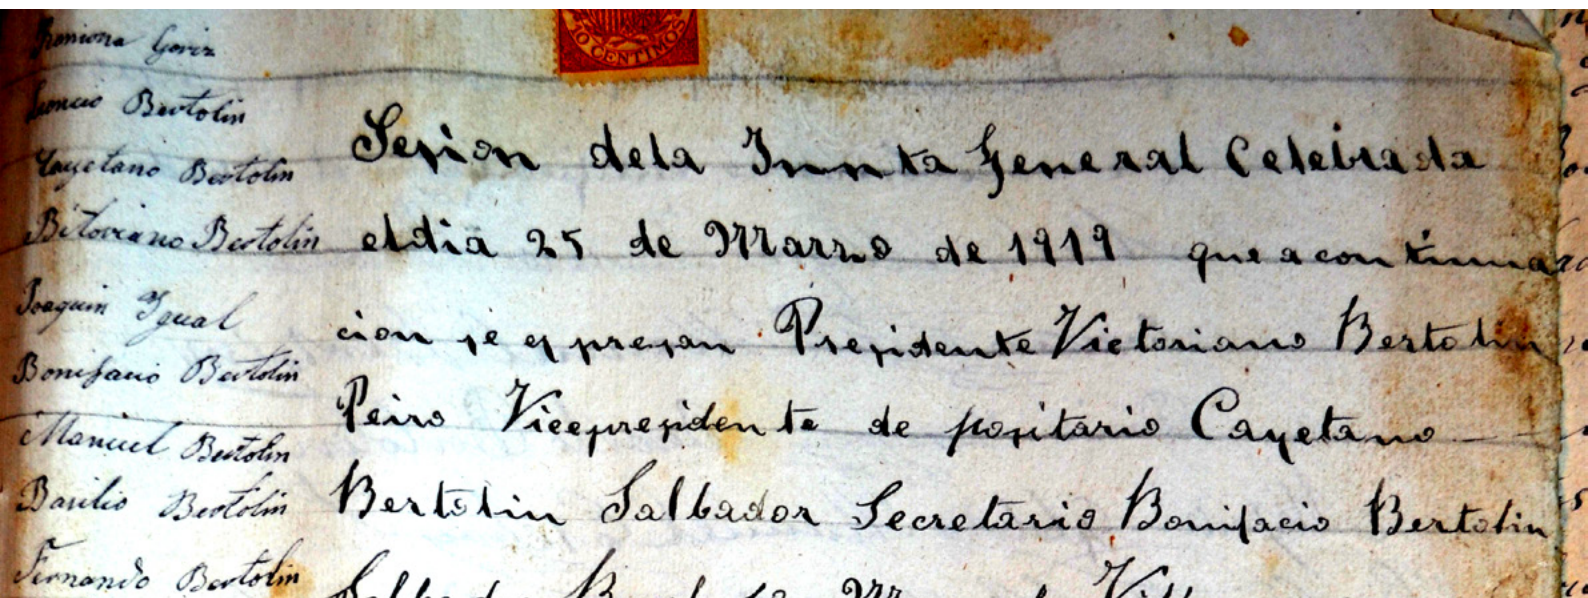 Goriz
10 CENTIMOS
Bertolin
Cayetano Bertolin
Bitoriano Bertolin
Joaquin Ygual
Bonifacio Bertolin
Manuel Bertolin
Basilio Bertolin
Fernando Bertolin
Sesion dela Junta General Celebrada
eldia 25 de Marzo de 1919 que a continua
cion se espresan Presidente Victoriano Bertolin
Peiro Vicepresidente de positario Cayetano
Bertolin Salbador Secretario Bonifacio Bertolin